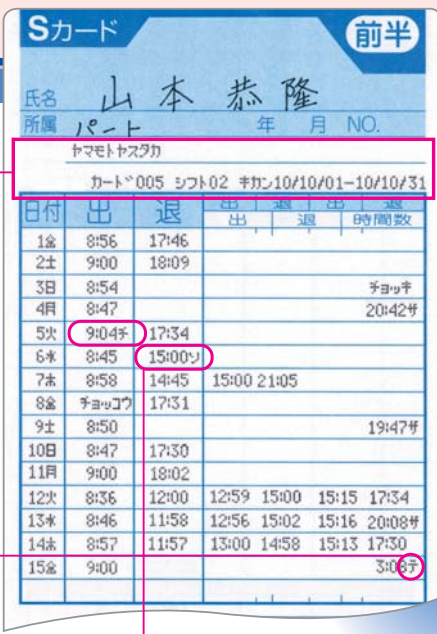 Sカード 前半
氏名 山本 恭隆
所属 パート 年 月 NO.
ヤマモトヤスタカ
カード005 シフト02 キカン10/10/01-10/10/31
日付 出 退 出 退 出 退
出 退 時間数
1金 8:56 17:46
2土 9:00 18:09
3日 8:54 チョッキ
4月 8:47 20:42サ
5火 9:04チ 17:34
6水 8:45 15:00ソ
7木 8:58 14:45 15:00 21:05
8金 チョッコウ 17:31
9土 8:50 19:47サ
10日 8:47 17:30
11月 9:00 18:02
12火 8:36 12:00 12:59 15:00 15:15 17:34
13水 8:46 11:58 12:56 15:02 15:16 20:08サ
14木 8:57 11:57 13:00 14:58 15:13 17:30
15金 9:00 3:08テ